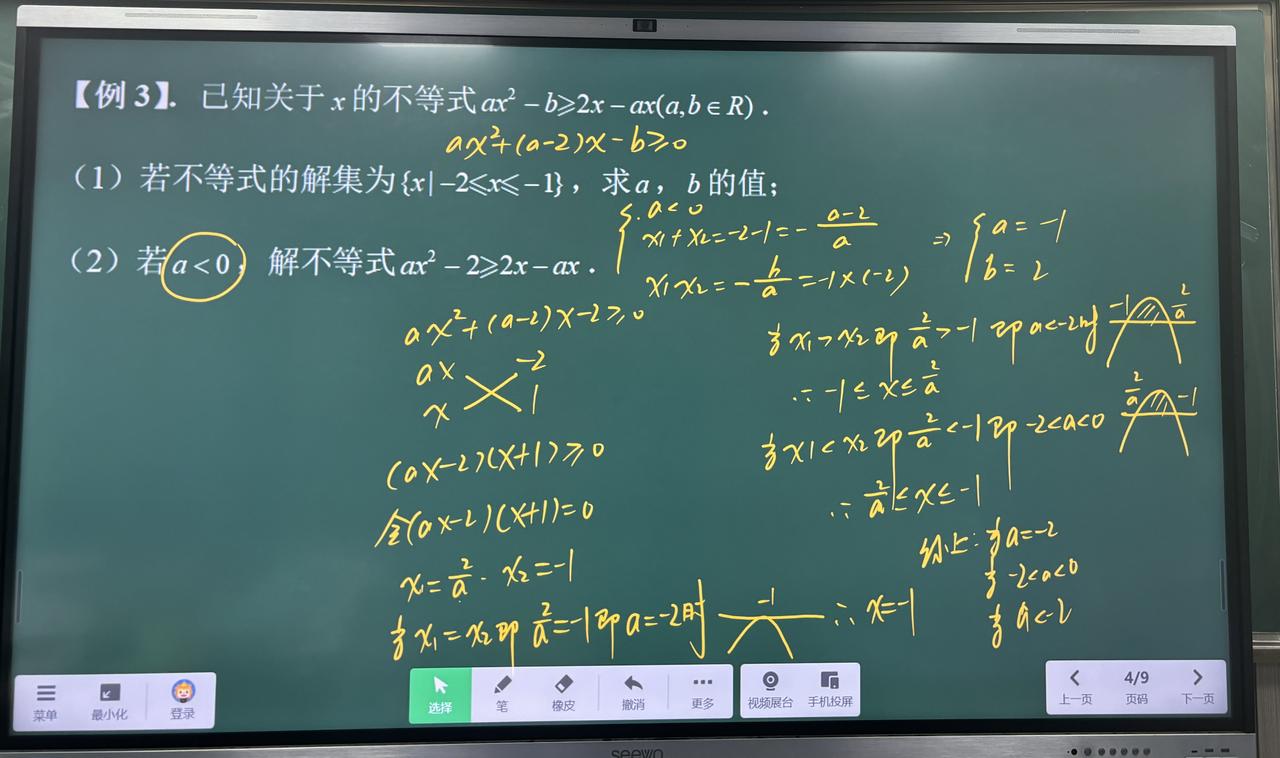 【例3】. 已知关于x的不等式ax²-b≥2x-ax(a,b∈R).
ax²+(a-2)x-b≥0
(1) 若不等式的解集为{x|-2≤x≤-1}, 求a, b的值;
a<0
x₁+x₂=-2-1=-\frac{a-2}{a}
x₁x₂=-\frac{b}{a}=-1×(-2)
⇒ { a=-1
b=2
(2) 若a<0, 解不等式ax²-2≥2x-ax.
ax²+(a-2)x-2≥0
ax -2
x 1
(ax-2)(x+1)≥0
令(ax-2)(x+1)=0
x₁=\frac{2}{a}. x₂=-1
当x₁=x₂即\frac{2}{a}=-1即a=-2时 -1 ∴x=-1
当x₁>x₂即\frac{2}{a}>-1即a<-2时 -1 \frac{2}{a}
∴-1≤x≤\frac{2}{a}
当x₁<x₂即\frac{2}{a}<-1即-2<a<0 \frac{2}{a} -1
∴\frac{2}{a}≤x≤-1
综上:当a=-2
当-2<a<0
当a<-2
菜单 最小化 登录 选择 笔 橡皮 撤消 更多 视频展台 手机投屏 上一页 4/9 页码 下一页
seewo